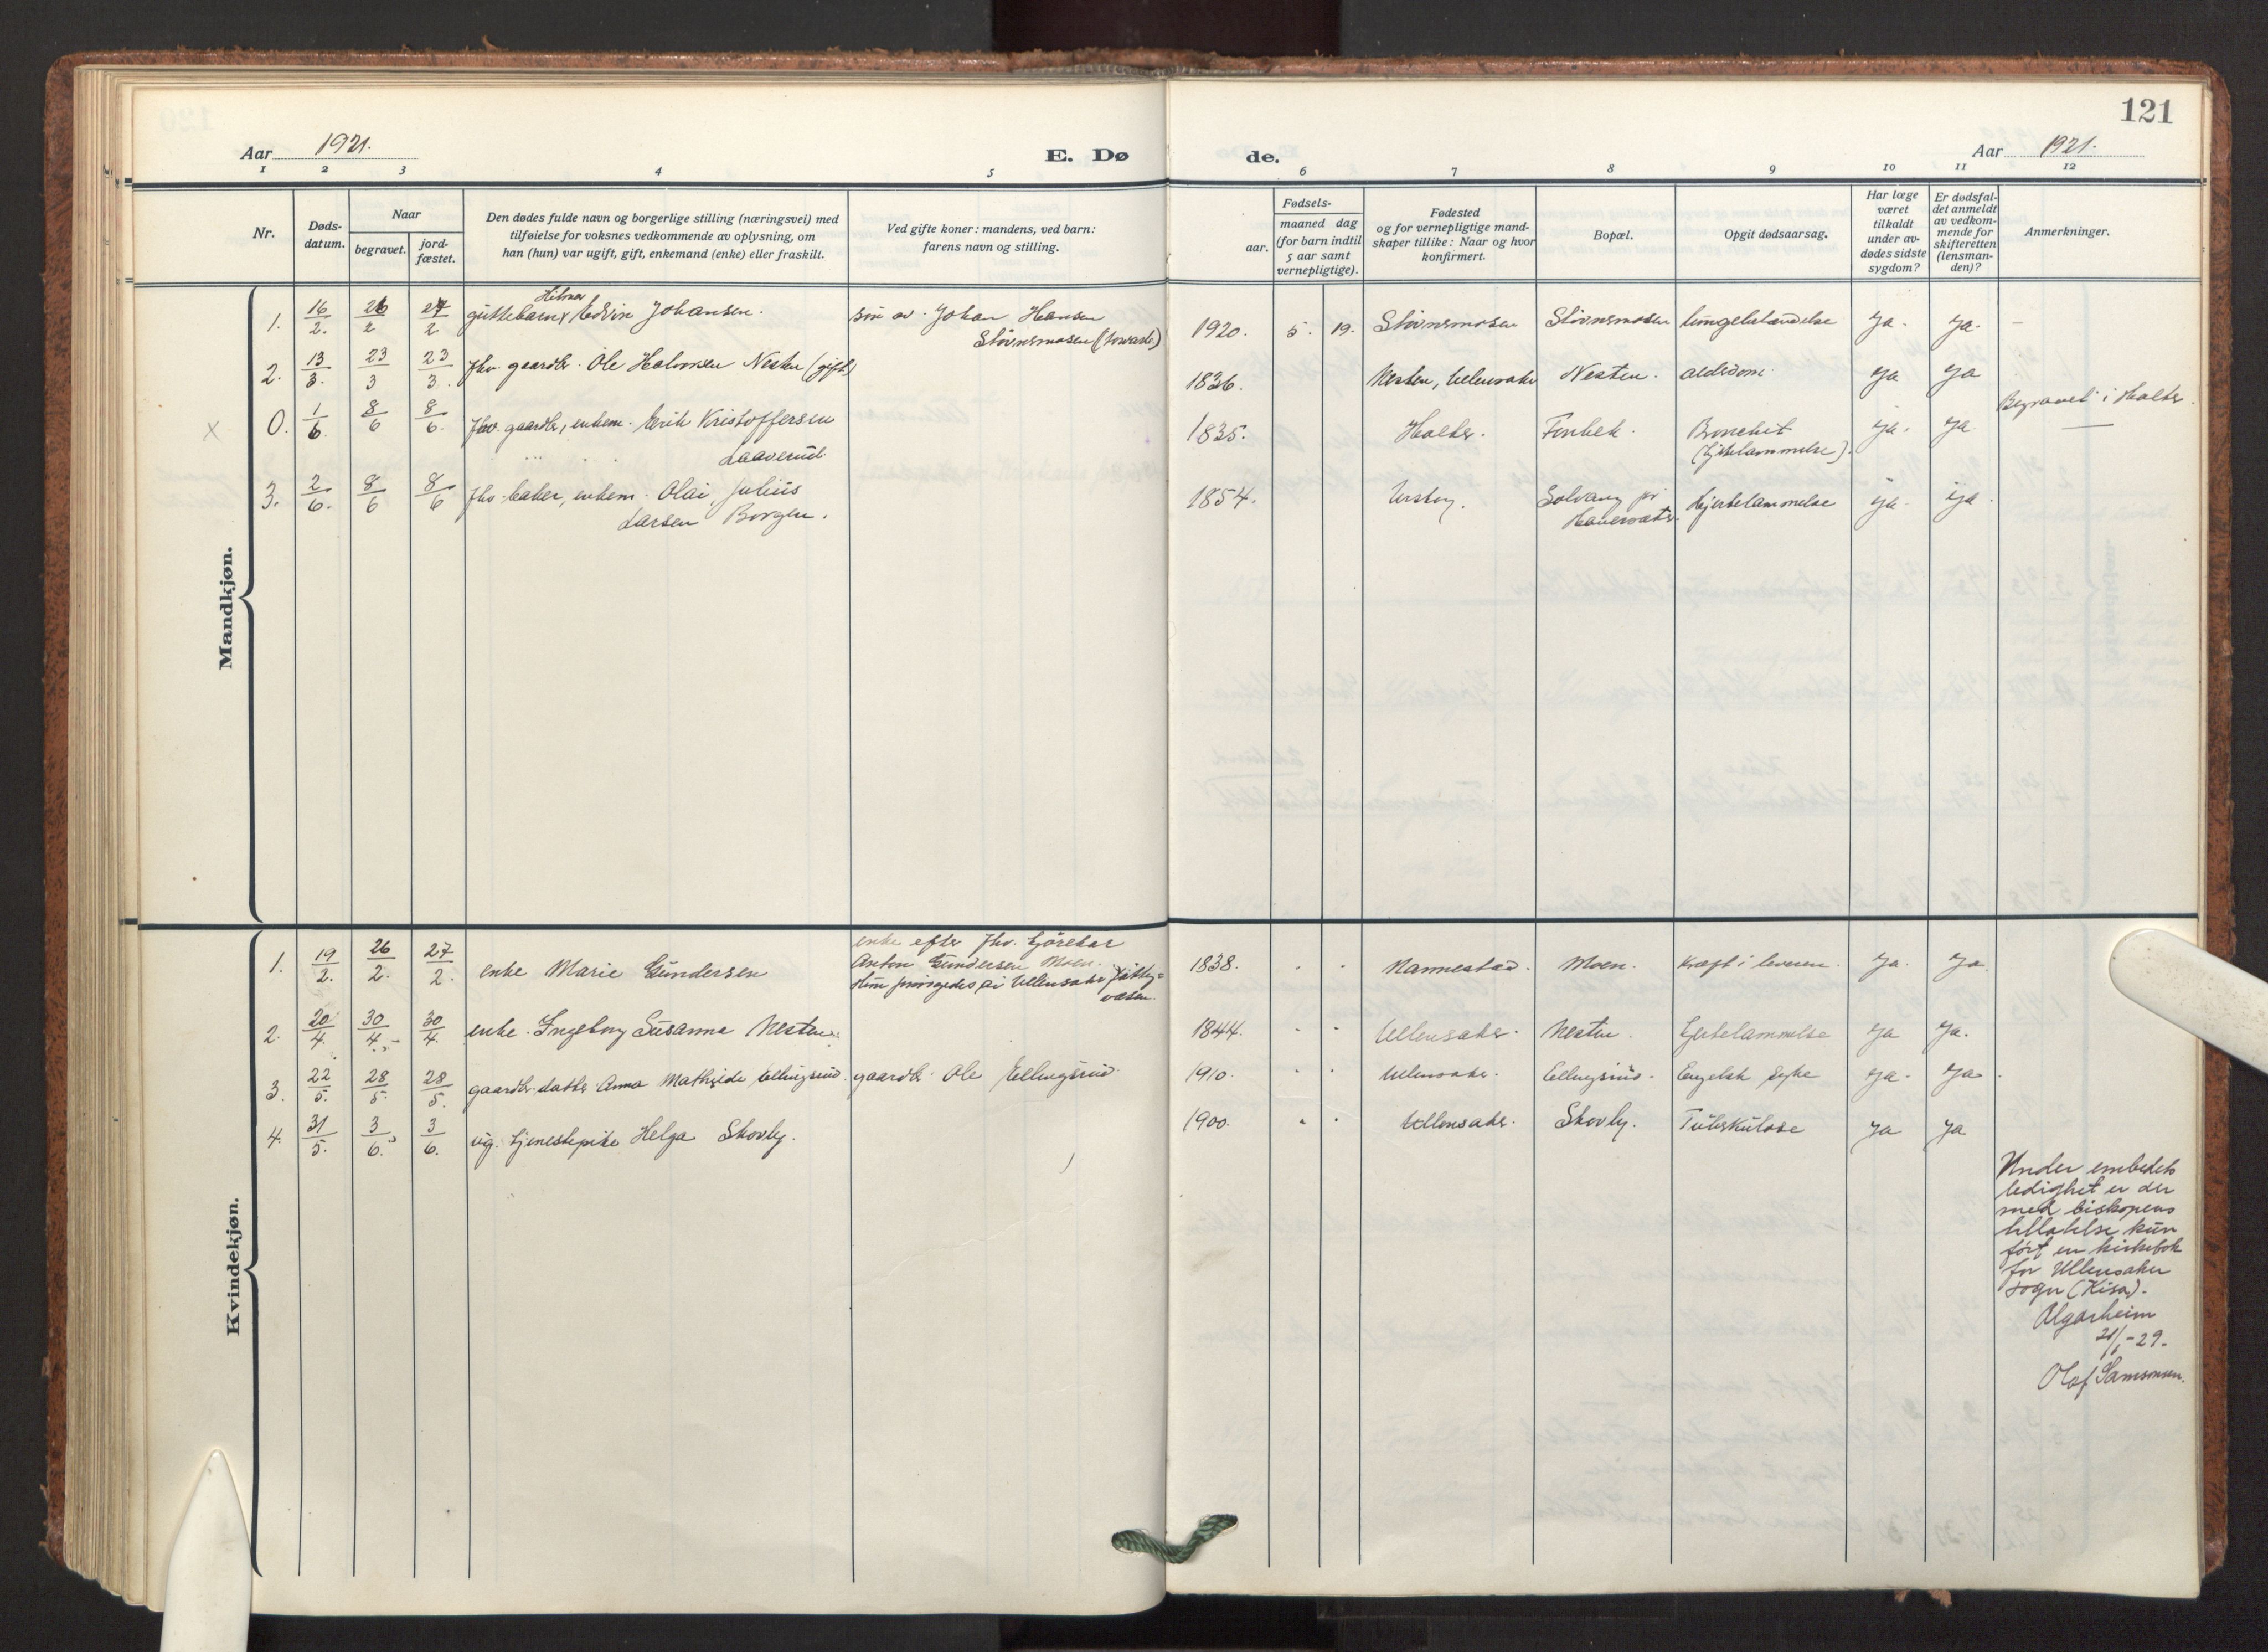 121
Aar 1921. E. Dø de. Aar 1921.
1 2 3 4 5 6 7 8 9 10 11 12
Nr.
Døds-
datum.
Naar
begravet.
jord-
fæstet.
Den dødes fulde navn og borgerlige stilling (næringsvei) med
tilføielse for voksnes vedkommende av oplysning, om
han (hun) var ugift, gift, enkemand (enke) eller fraskilt.
Ved gifte koner: mandens, ved barn:
farens navn og stilling.
Fødsels-
aar.
maaned dag
(for barn indtil
5 aar samt
vernepligtige).
Fødested
og for vernepligtige mand-
skaper tillike: Naar og hvor
konfirmert.
Bopæl.
Opgit dødsaarsag.
Har læge
været
tilkaldt
under av-
dødes sidste
sygdom?
Er dødsfal-
det anmeldt
av vedkom-
mende for
skifteretten
(lensman-
den)?
Anmerkninger.
Mandkjøn.
Hilmar
1. 16/2. 26/2 27/2 guttebarn Edvin Johansen. søn av Johan Hansen 1920. 5. 19. Stovnsmosen Stovnsmosen lungebetændelse Ja. Ja. –
Stovnsmosen
2. 13/3. 23/3 23/3. fhv. gaardbr. Ole Halvorsen Nesten (gift) 1836. Nesten, Ullensaker Nesten. alderdom Ja Ja
Begravet i Holter.
x 0. 1/6. 8/6 8/6. fhv. gaardbr, enkem. Erik Kristoffersen 1835. Holter. Finbek. Bronchit Ja. Ja
Laaverud. (Hjertelammelse).
3. 2/6. 8/6 8/6 fhv. baker, enkem. Olai Julius 1854. Solvang pr Hjertelammelse Ja. Ja.
Larsen Borgen.
Kvindekjøn.
enke efter fhv. kjørekar
1. 19/2. 26/2. 27/2. enke Marie Gundersen Anton Gundersen Moen. 1838. Nannestad. Moen. Kræft i leveren. Ja. Ja.
Hun forsørgedes av Ullensaker fattig=
væsen.
2. 20/4. 30/4. 30/4. enke Ingeborg Susanna Nesten. 1844. Ullensaker. Nesten. Hjertelammelse Ja Ja.
3. 22/5. 28/5. 28/5. gaardbr. datter Anna Mathilde Ellingsrud. gaardbr. Ole Ellingsrud 1910. Ullensaker. Ellingsrud. Engelsk syke Ja. Ja.
4. 31/5. 3/6. 3/6. ug. tjenestepike Helga Skovly. 1900. Ullensaker. Skovly. Tuberkulose Ja Ja
Under embedets
ledighet er der
med biskopens
tillatelse kun
ført en kirkebok
for Ullensaker
sogn (Kisa).
Algarheim
21/1-29.
Olaf Samsonsen.